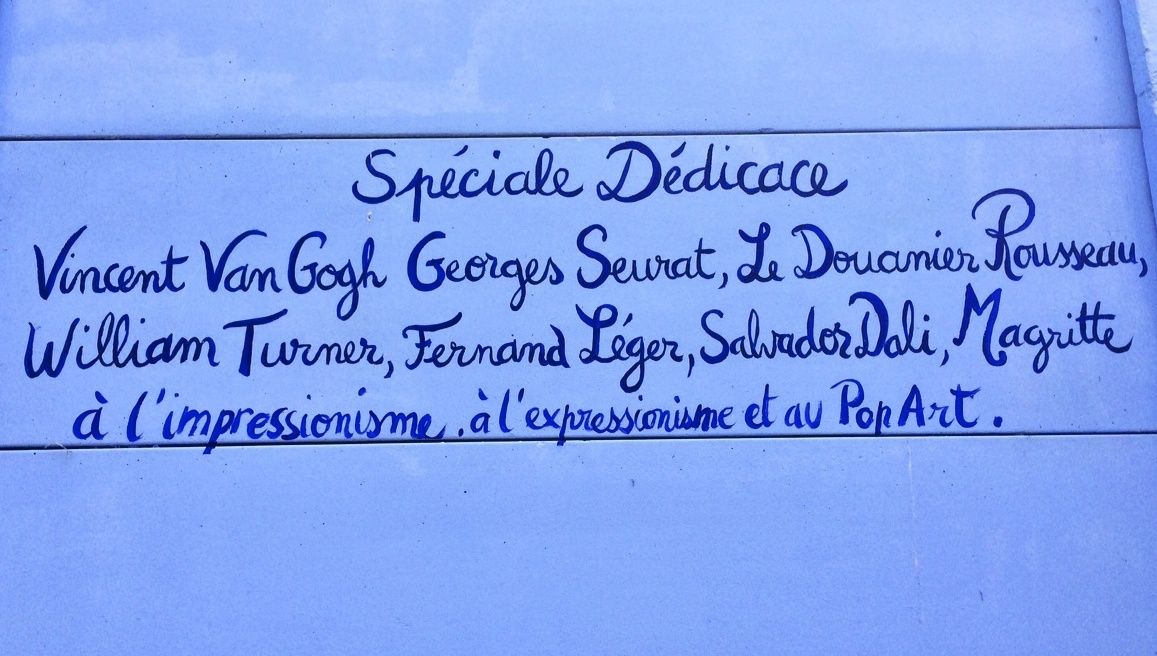 Spéciale Dédicace
Vincent Van Gogh Georges Seurat, Le Douanier Rousseau,
William Turner, Fernand Léger, Salvador Dali, Magritte
à l'impressionisme. à l'expressionisme et au Pop Art.